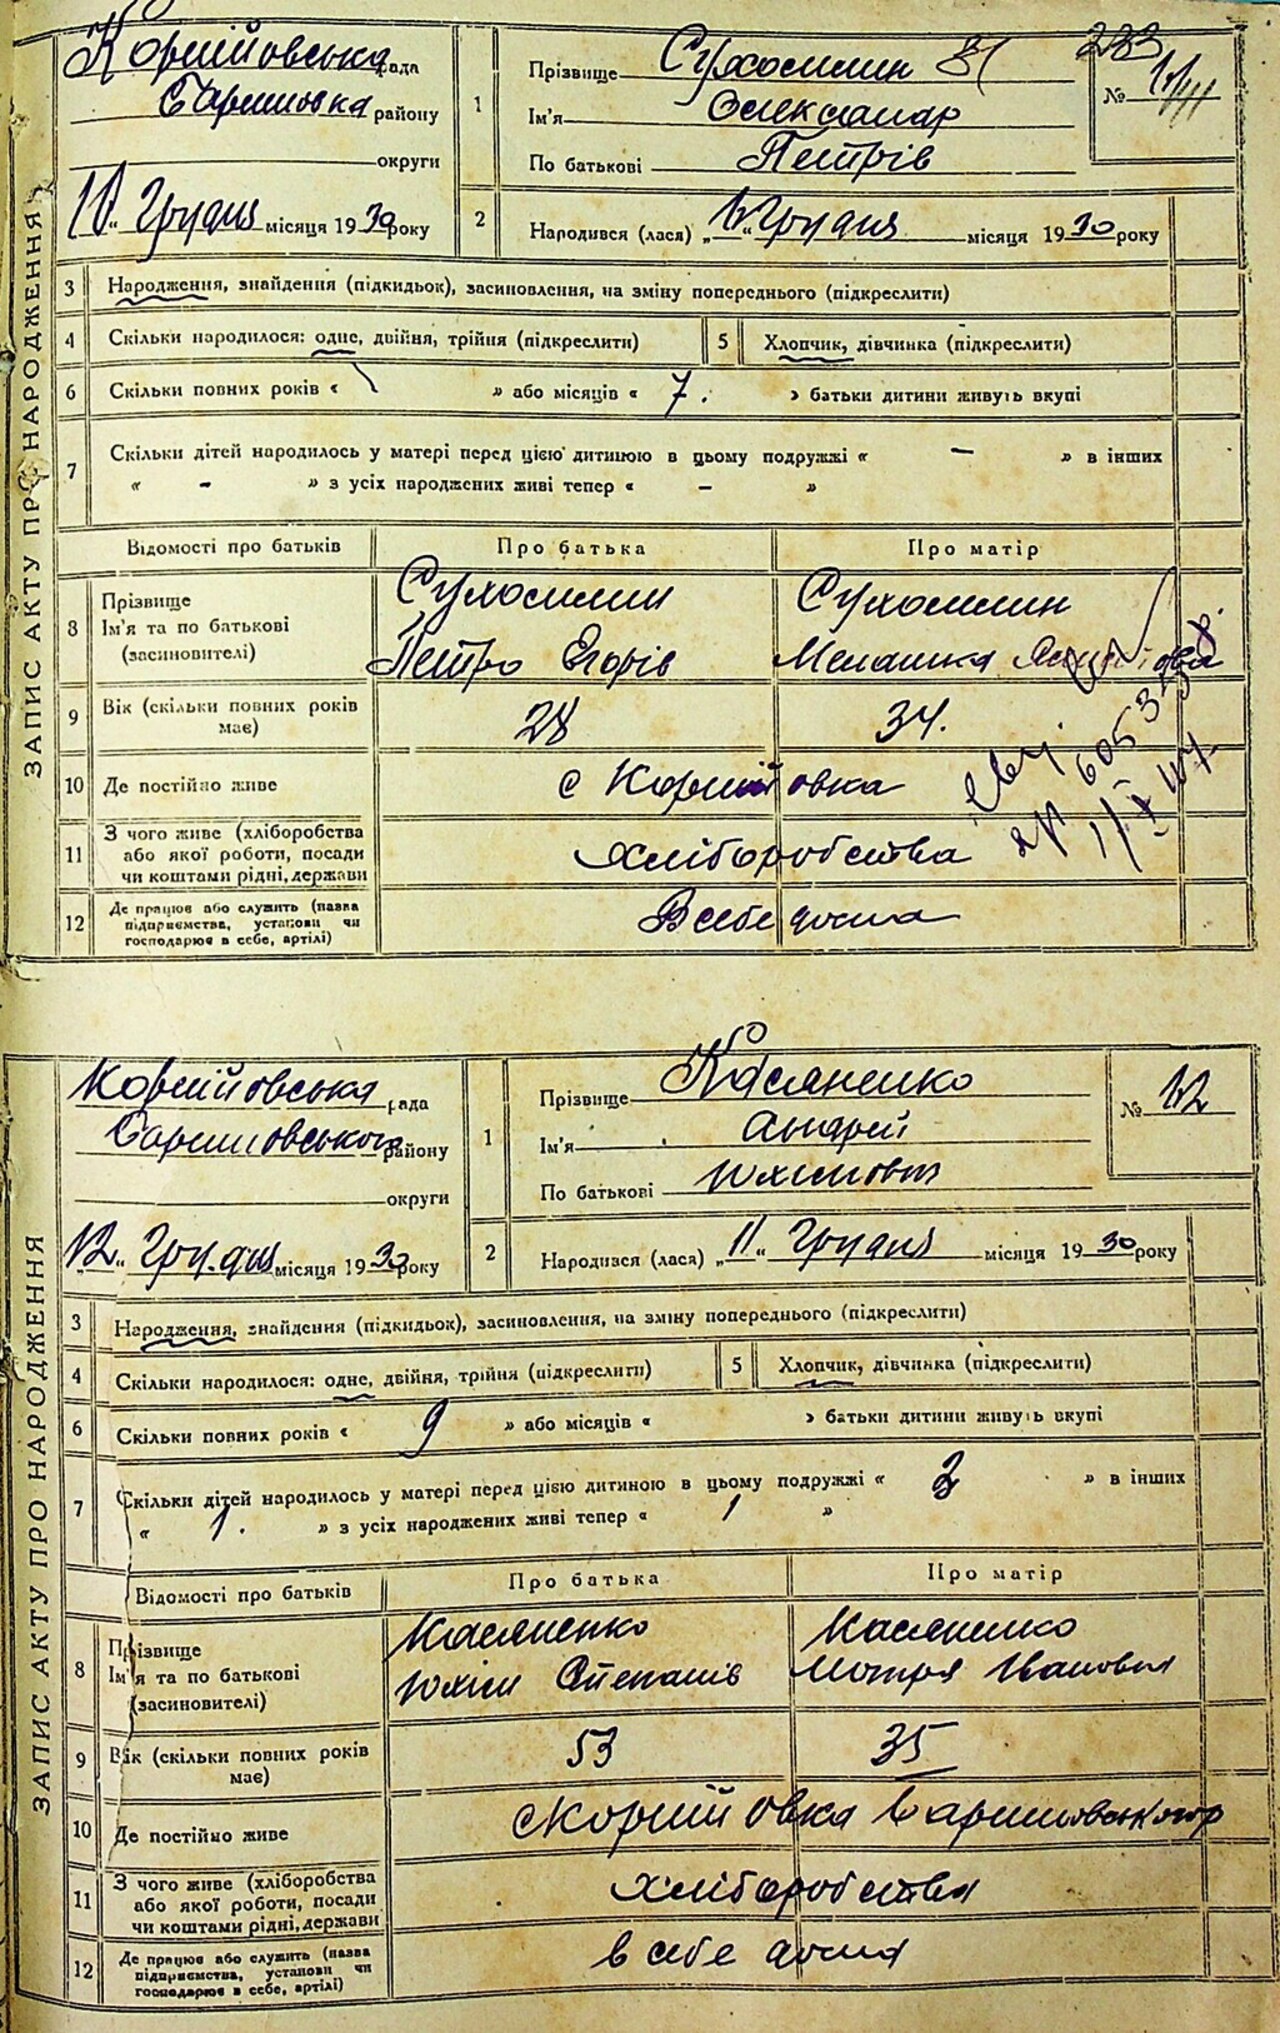 ЗАПИС АКТУ ПРО НАРОДЖЕННЯ
Корнійовська рада
Баришовка району
округи
10 " Грудня місяця 1930 року
1
Прізвище Сухомлин 81
Ім'я Олександр
По батькові Петрів
283
№
2
Народився (лася) „ " Грудня місяця 1930 року
3 Народження, знайдення (підкидьок), засиновлення, на зміну попереднього (підкреслити)
4 Скільки народилося: одне, двійня, трійня (підкреслити)
5 Хлопчик, дівчинка (підкреслити)
6 Скільки повних років « \ » або місяців « 7. » батьки дитини живуть вкупі
7 Скільки дітей народилось у матері перед цією дитиною в цьому подружжі « – » в інших
« - » з усіх народжених живі тепер « – »
Відомості про батьків Про батька Про матір
8 Прізвище Ім'я та по батькові (засиновителі)
Сухомлин
Петро Єгорів
Сухомлин
Меланка
9 Вік (скільки повних років має) 28 34.
10 Де постійно живе с Корнійовка
11 З чого живе (хліборобства або якої роботи, посади чи коштами рідні, держави хліборобства
12 Де працює або служить (назва підприємства, установи чи господарює в себе, артілі) В себе дома
ЗАПИС АКТУ ПРО НАРОДЖЕННЯ
Корнійовська рада
Баришовського району
округи
„12" Грудня місяця 1930 року
1
Прізвище Касяненко
Ім'я Андрей
По батькові Юхимович
№ 12
2
Народився (лася) „11" Грудня місяця 1930 року
3 Народження, знайдення (підкидьок), засиновлення, на зміну попереднього (підкреслити)
4 Скільки народилося: одне, двійня, трійня (підкреслити)
5 Хлопчик, дівчинка (підкреслити)
6 Скільки повних років « 9 » або місяців « » батьки дитини живуть вкупі
7 Скільки дітей народилось у матері перед цією дитиною в цьому подружжі « 2 » в інших
« 1. » з усіх народжених живі тепер « 1 »
Відомості про батьків Про батька Про матір
8 Прізвище Ім'я та по батькові (засиновителі)
Касяненко
Юхим Степанів
Касяненко
Мотря Івановна
9 Вік (скільки повних років має) 53 35
10 Де постійно живе с Корнійовка Баришовського р
11 З чого живе (хліборобства або якої роботи, посади чи коштами рідні, держави хліборобства
12 Де працює або служить (назва підприємства, установи чи господарює в себе, артілі) в себе дома